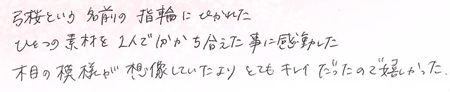 弓桜という名前の指輪にひかれた
ひとつの素材を2人で分かち合えた事に感動した
木目の模様が想像していたよりとてもキレイだったので嬉しかった.